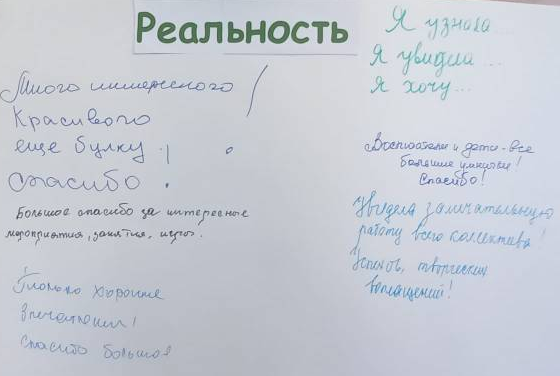 Реальность
Я узнала
Я увидела...
Я хочу...
Много интересного
Красивого
еще булку :)
спасибо.
Большое спасибо за интересные
мероприятия, занятия, игры.
Только хорошие
впечатления!
Спасибо большое
Воспитатели и дети - все
большие умнички!
Спасибо!
Увидела замечательную
работу всего коллектива!
Успехов, творческих
воплощений!